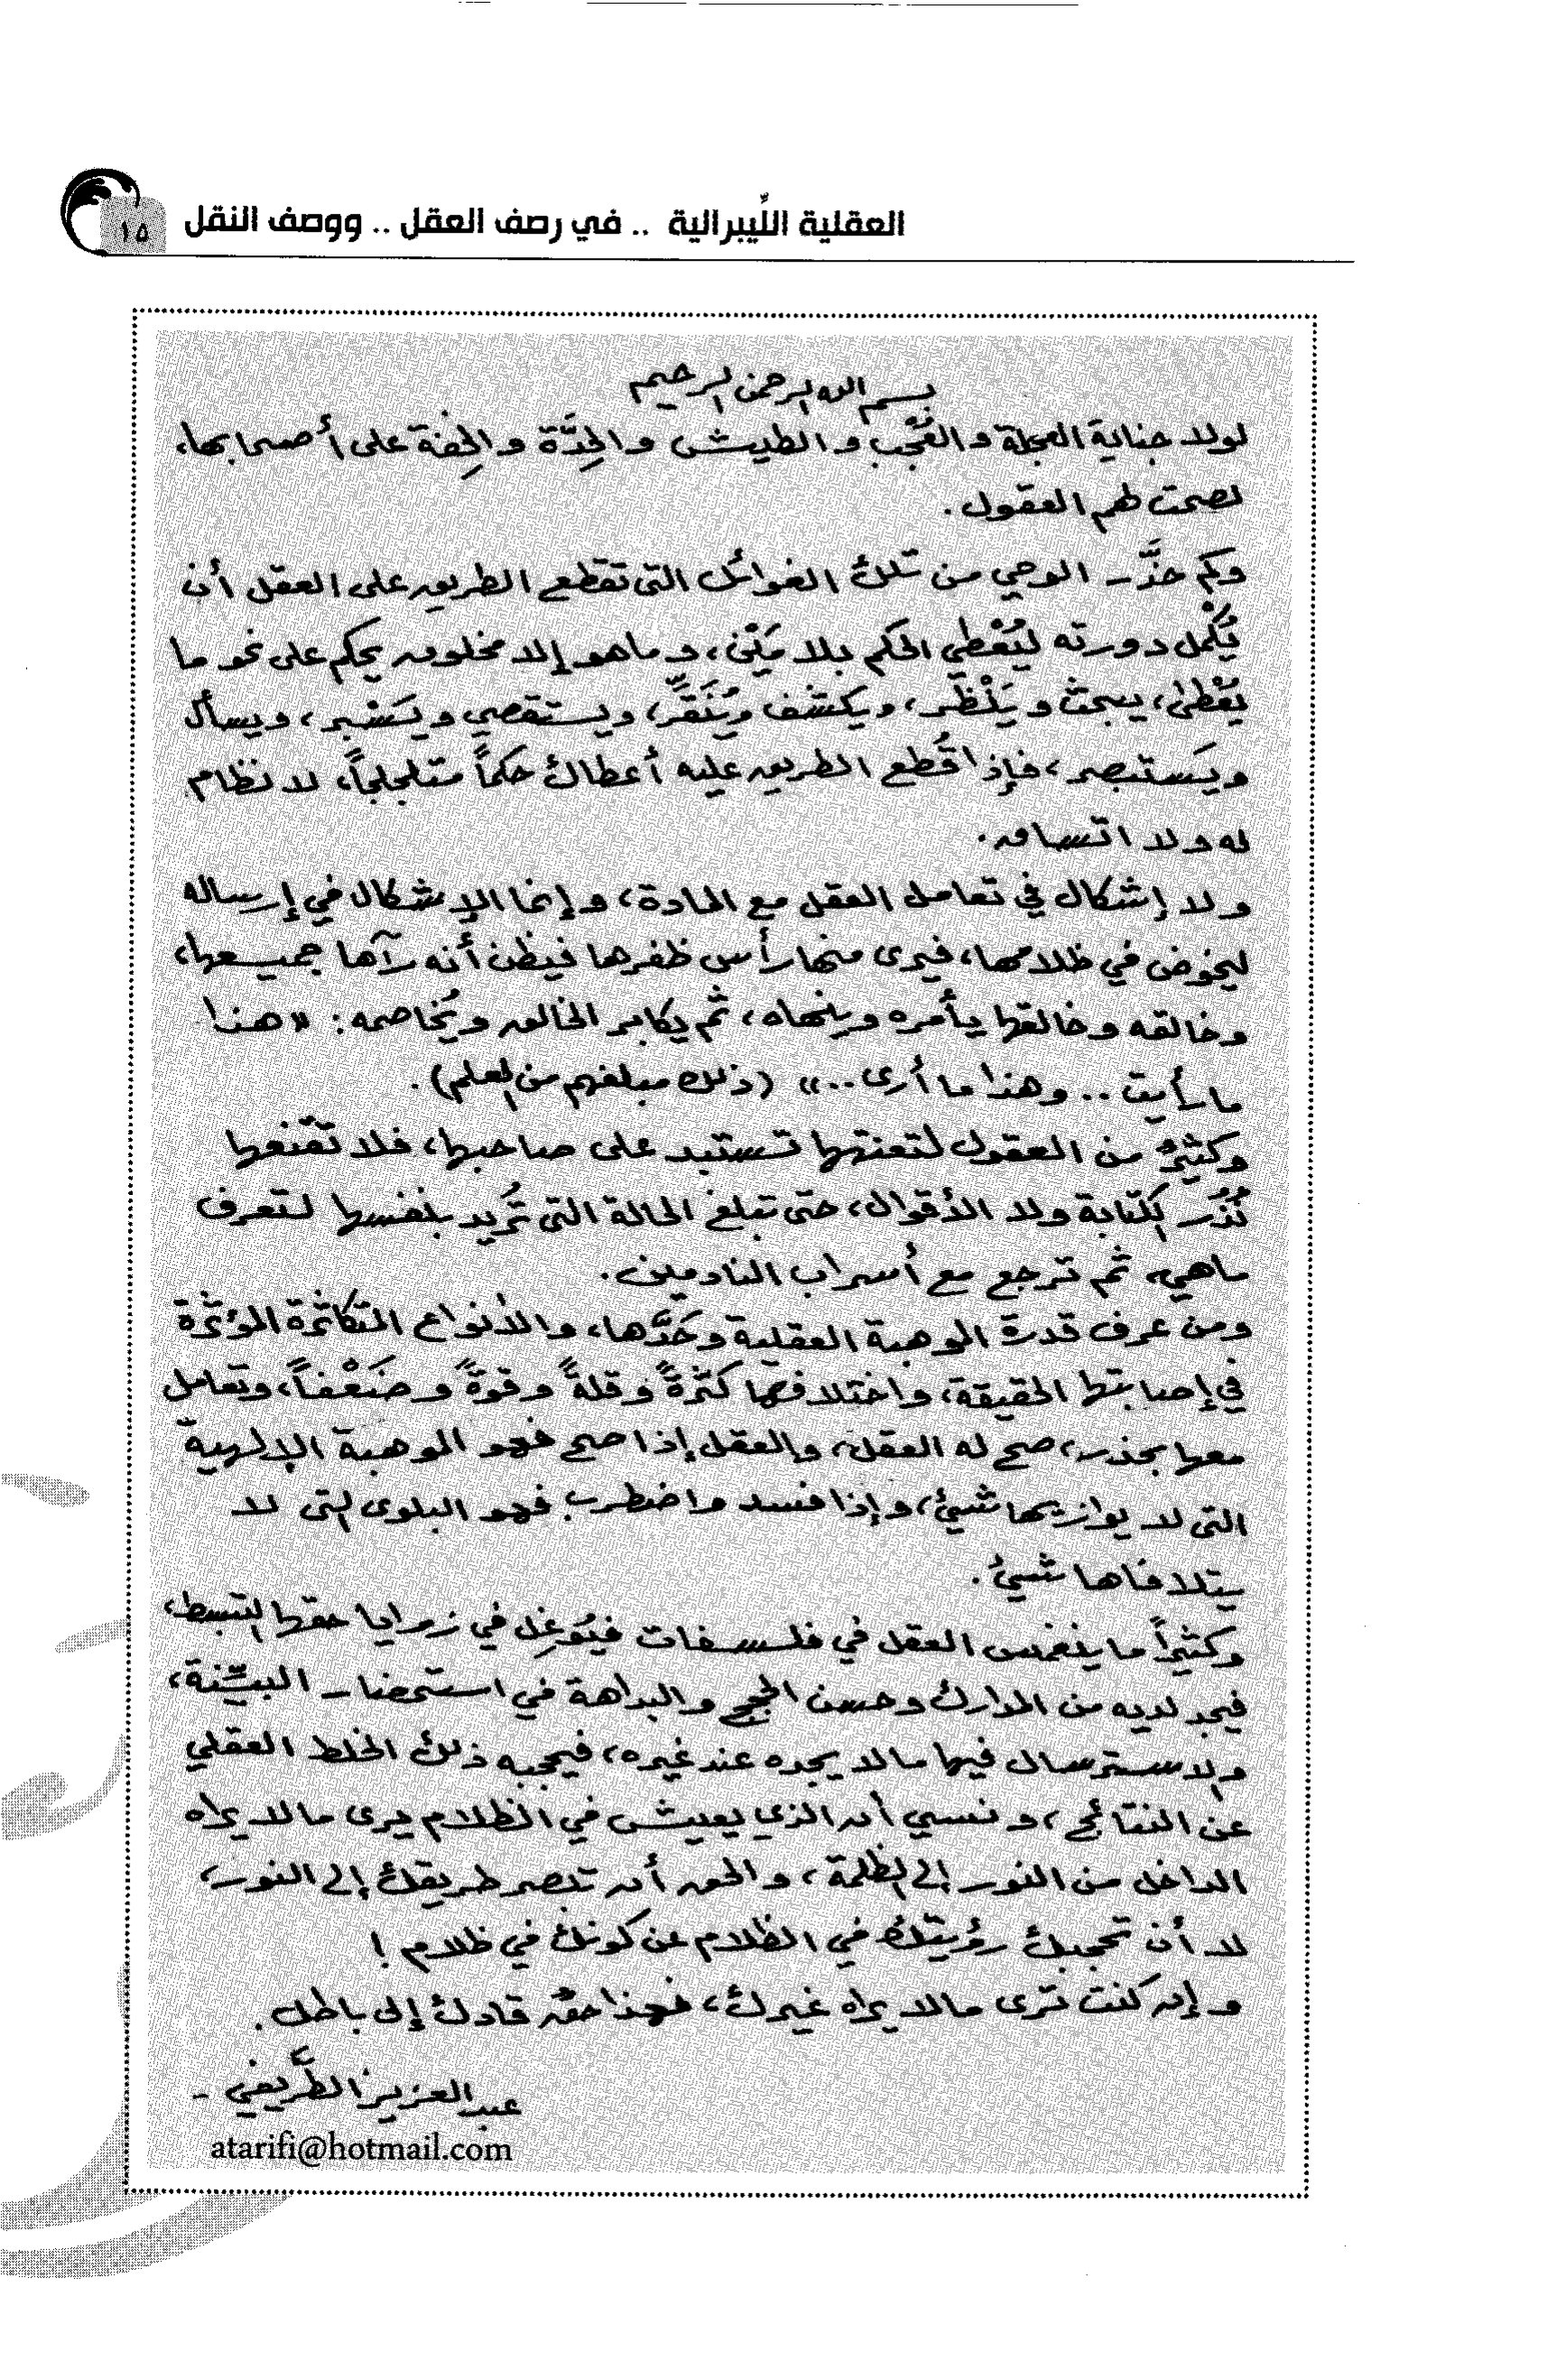 العقلية اللِّيبرالية .. في رصف العقل .. ووصف النقل
١٥
بسم الله الرحمن الرحيم
لولا جناية العجلة والعُجْب والطيش والحِدَّة والخِفة على أصحابها،
لصحت لهم العقول.
وكم حذَّر الوحي من تلك الغوائل التي تقطع الطريق على العقل أن
يُكْمل دورته ليُعْطي الحكم بلا مَيْن، وما هو إلا مخلوق يحكم على نحو ما
يُعْطى، يبحث ويَنْظُر، ويكشف ويُنَقِّر، ويستقصي ويَسْبر، ويسأل
ويَستبصر، فإذا قُطع الطريق عليه أعطاك حكماً متلجلجاً، لا نظام
له ولا اتساق.
ولا إشكال في تعامل العقل مع المادة، وإنما الإشكال في إرساله
ليخوض في ظلامها، فيرى منها رأس ظفرها فيظن أنه رآها جميعها،
وخالقه وخالقها يأمره وينهاه، ثم يكابر الخالق ويُخاصمه: «هذا
ما رأيت .. وهذا ما أرى ..» (ذلك مبلغهم من العلم).
وكثيرٌ من العقول لتعنتها تستبد على صاحبها، فلا تقنعها
نُذُر الكتابة ولا الأقوال، حتى تبلغ الحالة التي تُريد بنفسها لتعرف
ماهي، ثم ترجع مع أسراب النادمين.
ومن عرف قدرة الموهبة العقلية وحَدَّها، والأنواع المتكاثرة المؤثرة
في إصابتها الحقيقة، واختلافها كثرةً وقلةً وقوةً وضَعْفاً، وتعامل
معها بحذر، صح له العقل، والعقل إذا صح فهو الموهبة الإلهية
التي لا يوازيها شيءٌ، وإذا فسد واضطرب فهو البلوى التي لا
يتلافاها شيءٌ.
وكثيراً ما ينغمس العقل في فلسفات فيُوغِل في زوايا حقها التبسط،
فيجد لديه من المدارك وحسن الحجج والبداهة في استحضار البيِّنة،
والاسترسال فيها مالا يجده عند غيره، فيحجبه ذلك الخلط العقلي
عن النتائج، ونسي أن الذي يعيش في الظلام يرى مالا يراه
الداخل من النور إلى الظلمة، والحق أن تبصر طريقك إلى النور،
لا أن تحجبك رؤيتك في الظلام عن كونك في ظلام!
وإن كنت ترى مالا يراه غيرك، فهذا حقٌ قادك إلى باطل.
عبدالعزيز الطَّريفي -
atarifi@hotmail.com